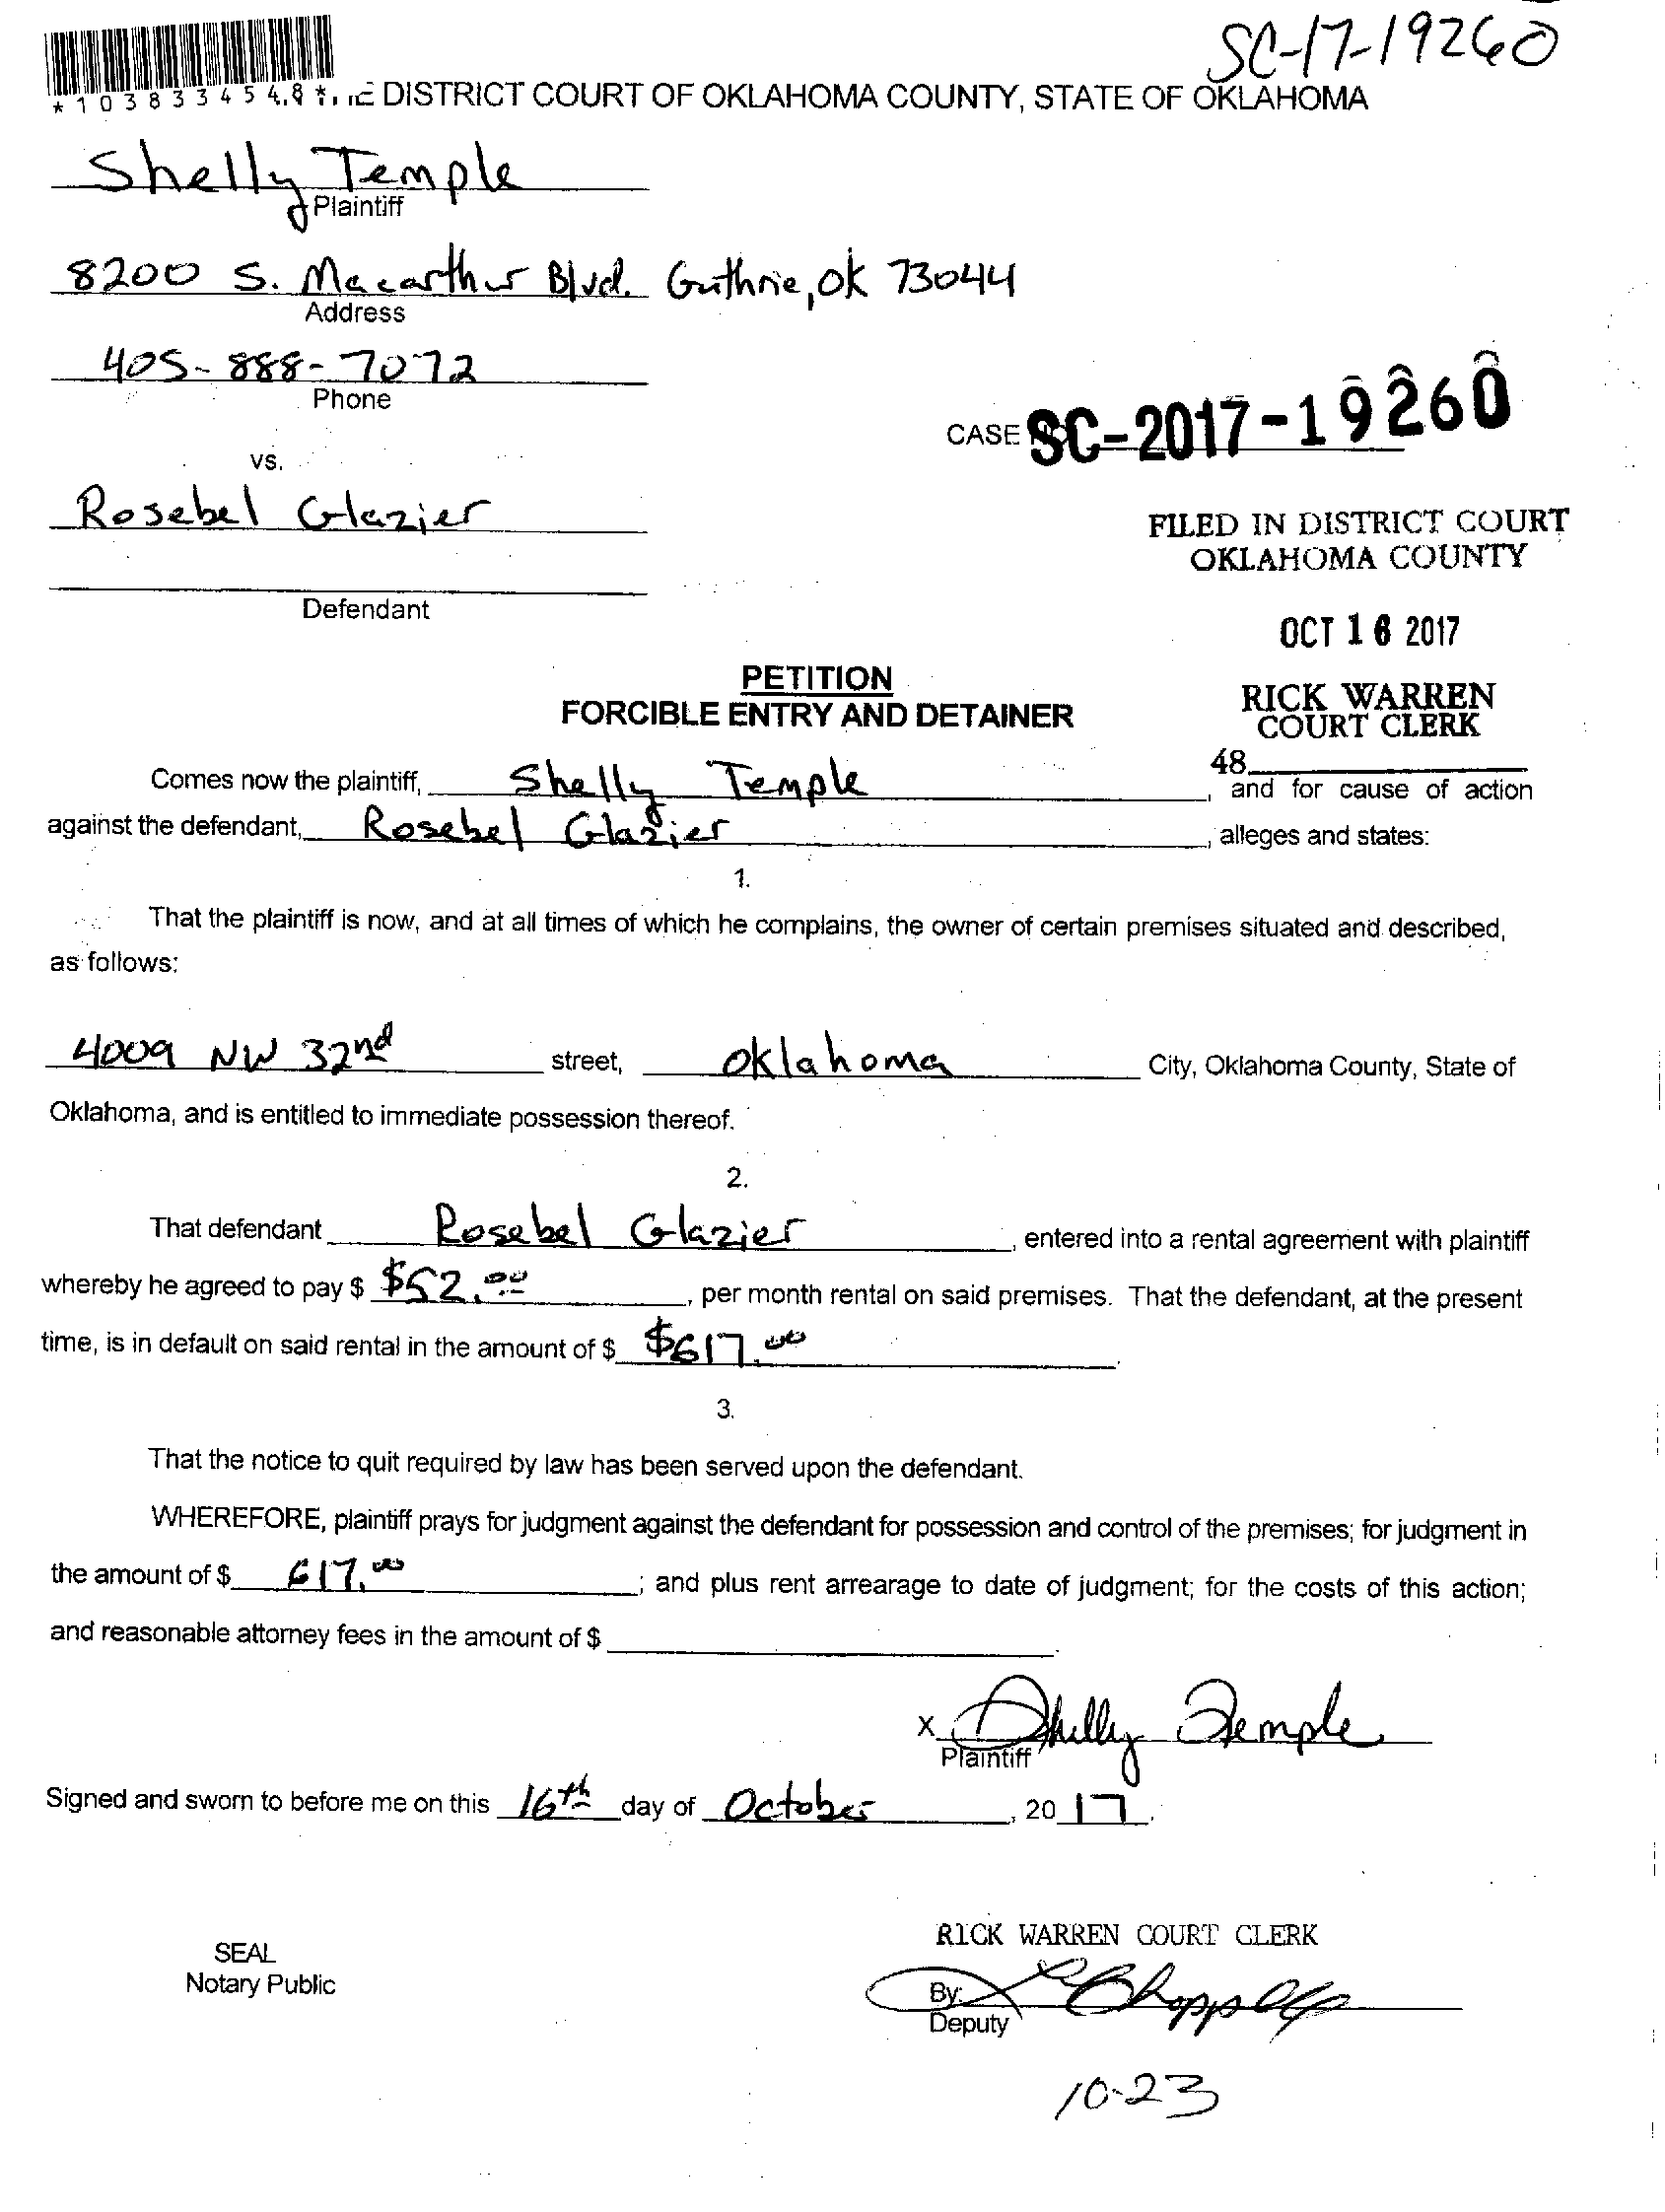 SC-17-19260
*1038334548* DISTRICT COURT OF OKLAHOMA COUNTY, STATE OF OKLAHOMA
Shelly Temple
Plaintiff
8200 S. Macarthur Blvd. Guthrie, OK 73044
Address
405-888-7072
Phone
CASE SC-2017-19260
vs.
Rosebel Glazier
FILED IN DISTRICT COURT
OKLAHOMA COUNTY
Defendant
OCT 16 2017
PETITION
FORCIBLE ENTRY AND DETAINER
RICK WARREN
COURT CLERK
48
Comes now the plaintiff, Shelly Temple, and for cause of action
against the defendant, Rosebel Glazier, alleges and states:
1.
That the plaintiff is now, and at all times of which he complains, the owner of certain premises situated and described,
as follows:
4009 NW 32nd street, Oklahoma City, Oklahoma County, State of
Oklahoma, and is entitled to immediate possession thereof.
2.
That defendant Rosebel Glazier, entered into a rental agreement with plaintiff
whereby he agreed to pay $ $52.00, per month rental on said premises. That the defendant, at the present
time, is in default on said rental in the amount of $ $617.00.
3.
That the notice to quit required by law has been served upon the defendant.
WHEREFORE, plaintiff prays for judgment against the defendant for possession and control of the premises; for judgment in
the amount of $ 617.00; and plus rent arrearage to date of judgment; for the costs of this action;
and reasonable attorney fees in the amount of $ .
X Shelly Temple
Plaintiff
Signed and sworn to before me on this 16th day of October, 2017.
RICK WARREN COURT CLERK
SEAL
Notary Public
By:
Deputy
10-23